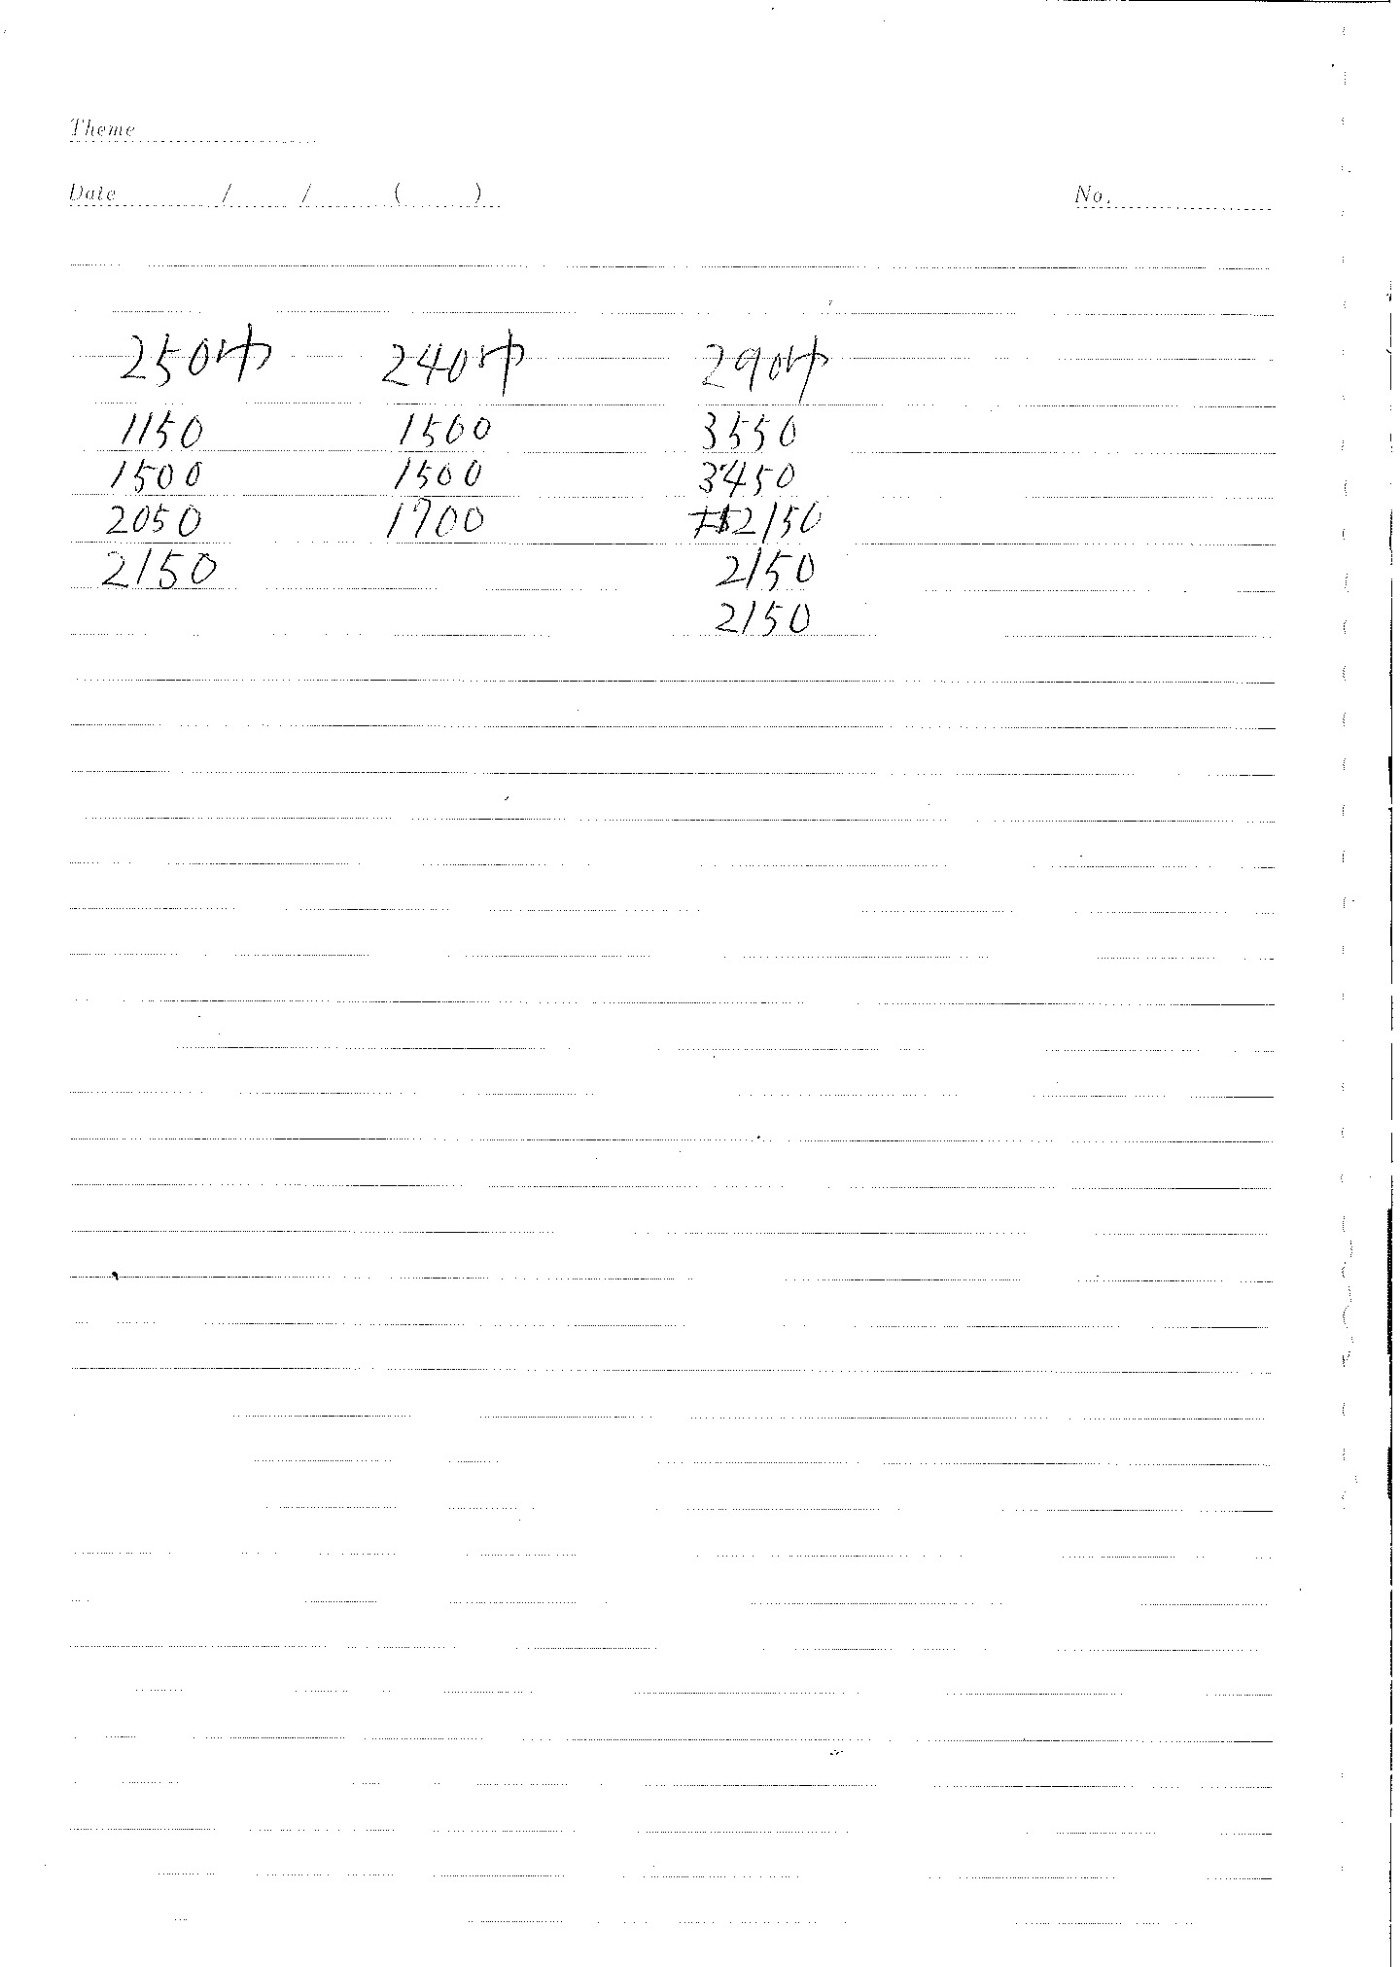 Theme
Date / / ( )
No.
250巾 240巾 290巾
1150 1500 3550
1500 1500 3450
2050 1700 2150
2150 2150
2150